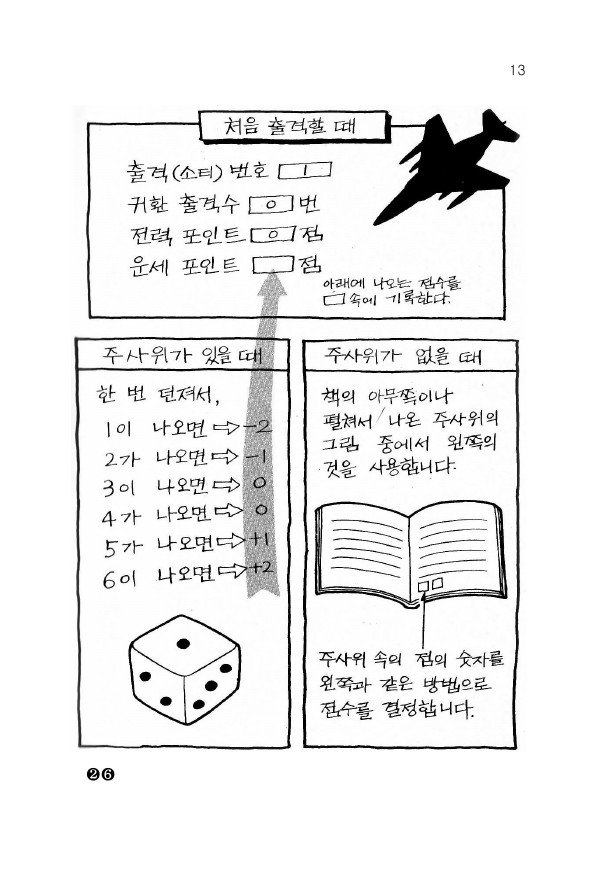 13
처음 출격할 때
출격(소티) 번호 1
귀환 출격수 0 번
전력 포인트 0 점
운세 포인트 점
아래에 나오는 점수를
속에 기록한다.
주사위가 있을 때
한 번 던져서,
1이 나오면 ⇨ -2
2가 나오면 ⇨ -1
3이 나오면 ⇨ 0
4가 나오면 ⇨ 0
5가 나오면 ⇨ +1
6이 나오면 ⇨ +2
주사위가 없을 때
책의 아무쪽이나
펼쳐서/나온 주사위의
그림 중에서 왼쪽의
것을 사용합니다.
주사위 속의 점의 숫자를
왼쪽과 같은 방법으로
점수를 결정합니다.
❷❻